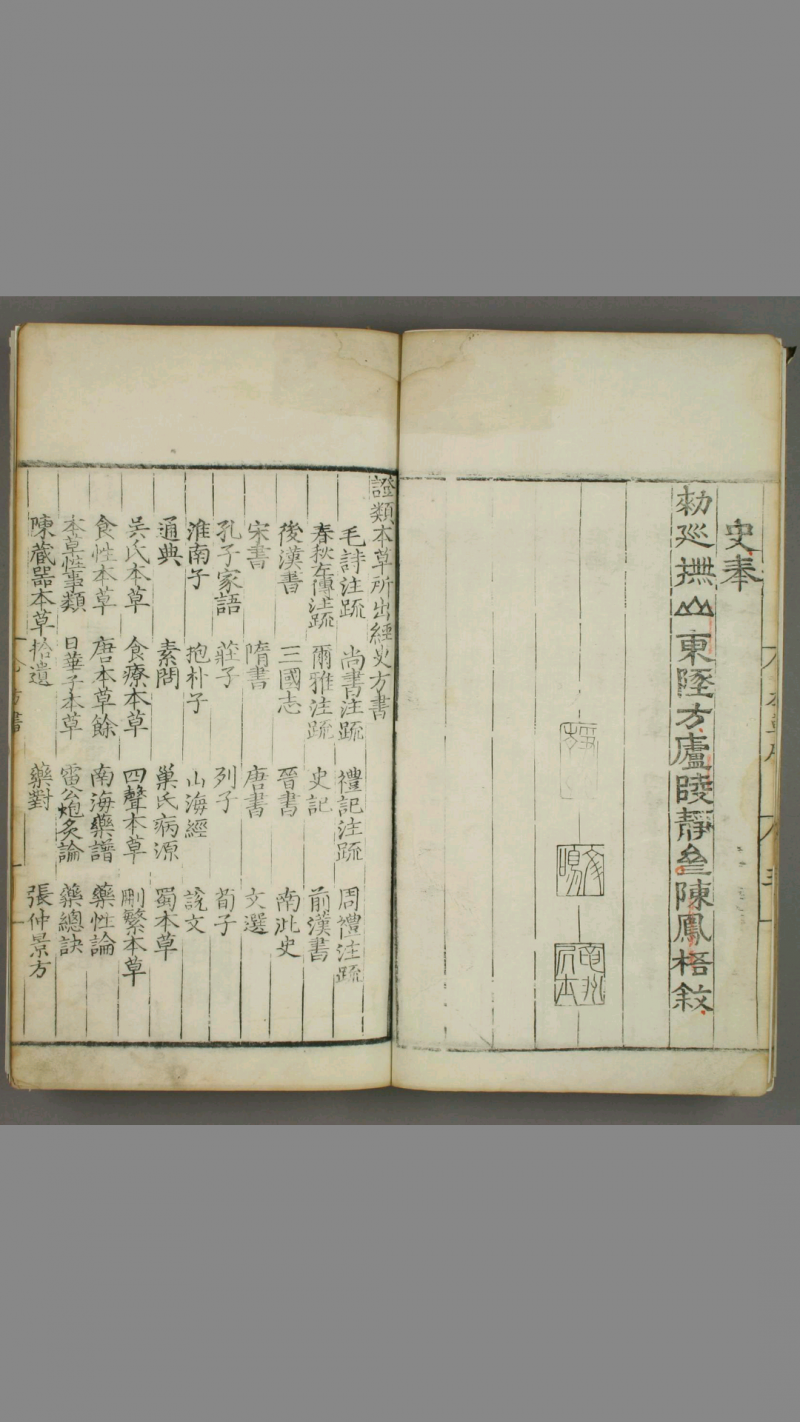 史奉
勑廵撫山東陛方廬陵靜叄陳鳳梧敘
證類本草所出經史方書
毛詩注疏 尚書注疏 禮記注疏 周禮注疏
春秋左傳注疏 爾雅注疏 史記 前漢書
後漢書 三國志 晉書 南北史
宋書 隋書 唐書 文選
孔子家語 莊子 列子 荀子
淮南子 抱朴子 山海經 說文
通典 素問 巢氏病源 蜀本草
吳氏本草 食療本草 四聲本草 刪繁本草
食性本草 唐本草餘 南海藥譜 藥性論
本草性事類 日華子本草 雷公炮炙論 藥總訣
陳藏器本草拾遺 藥對 張仲景方